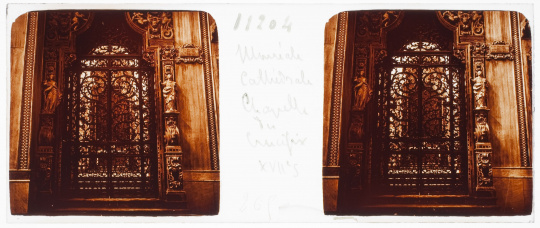 11204
Cathédrale
Chapelle
du
Crucifix
XVII s